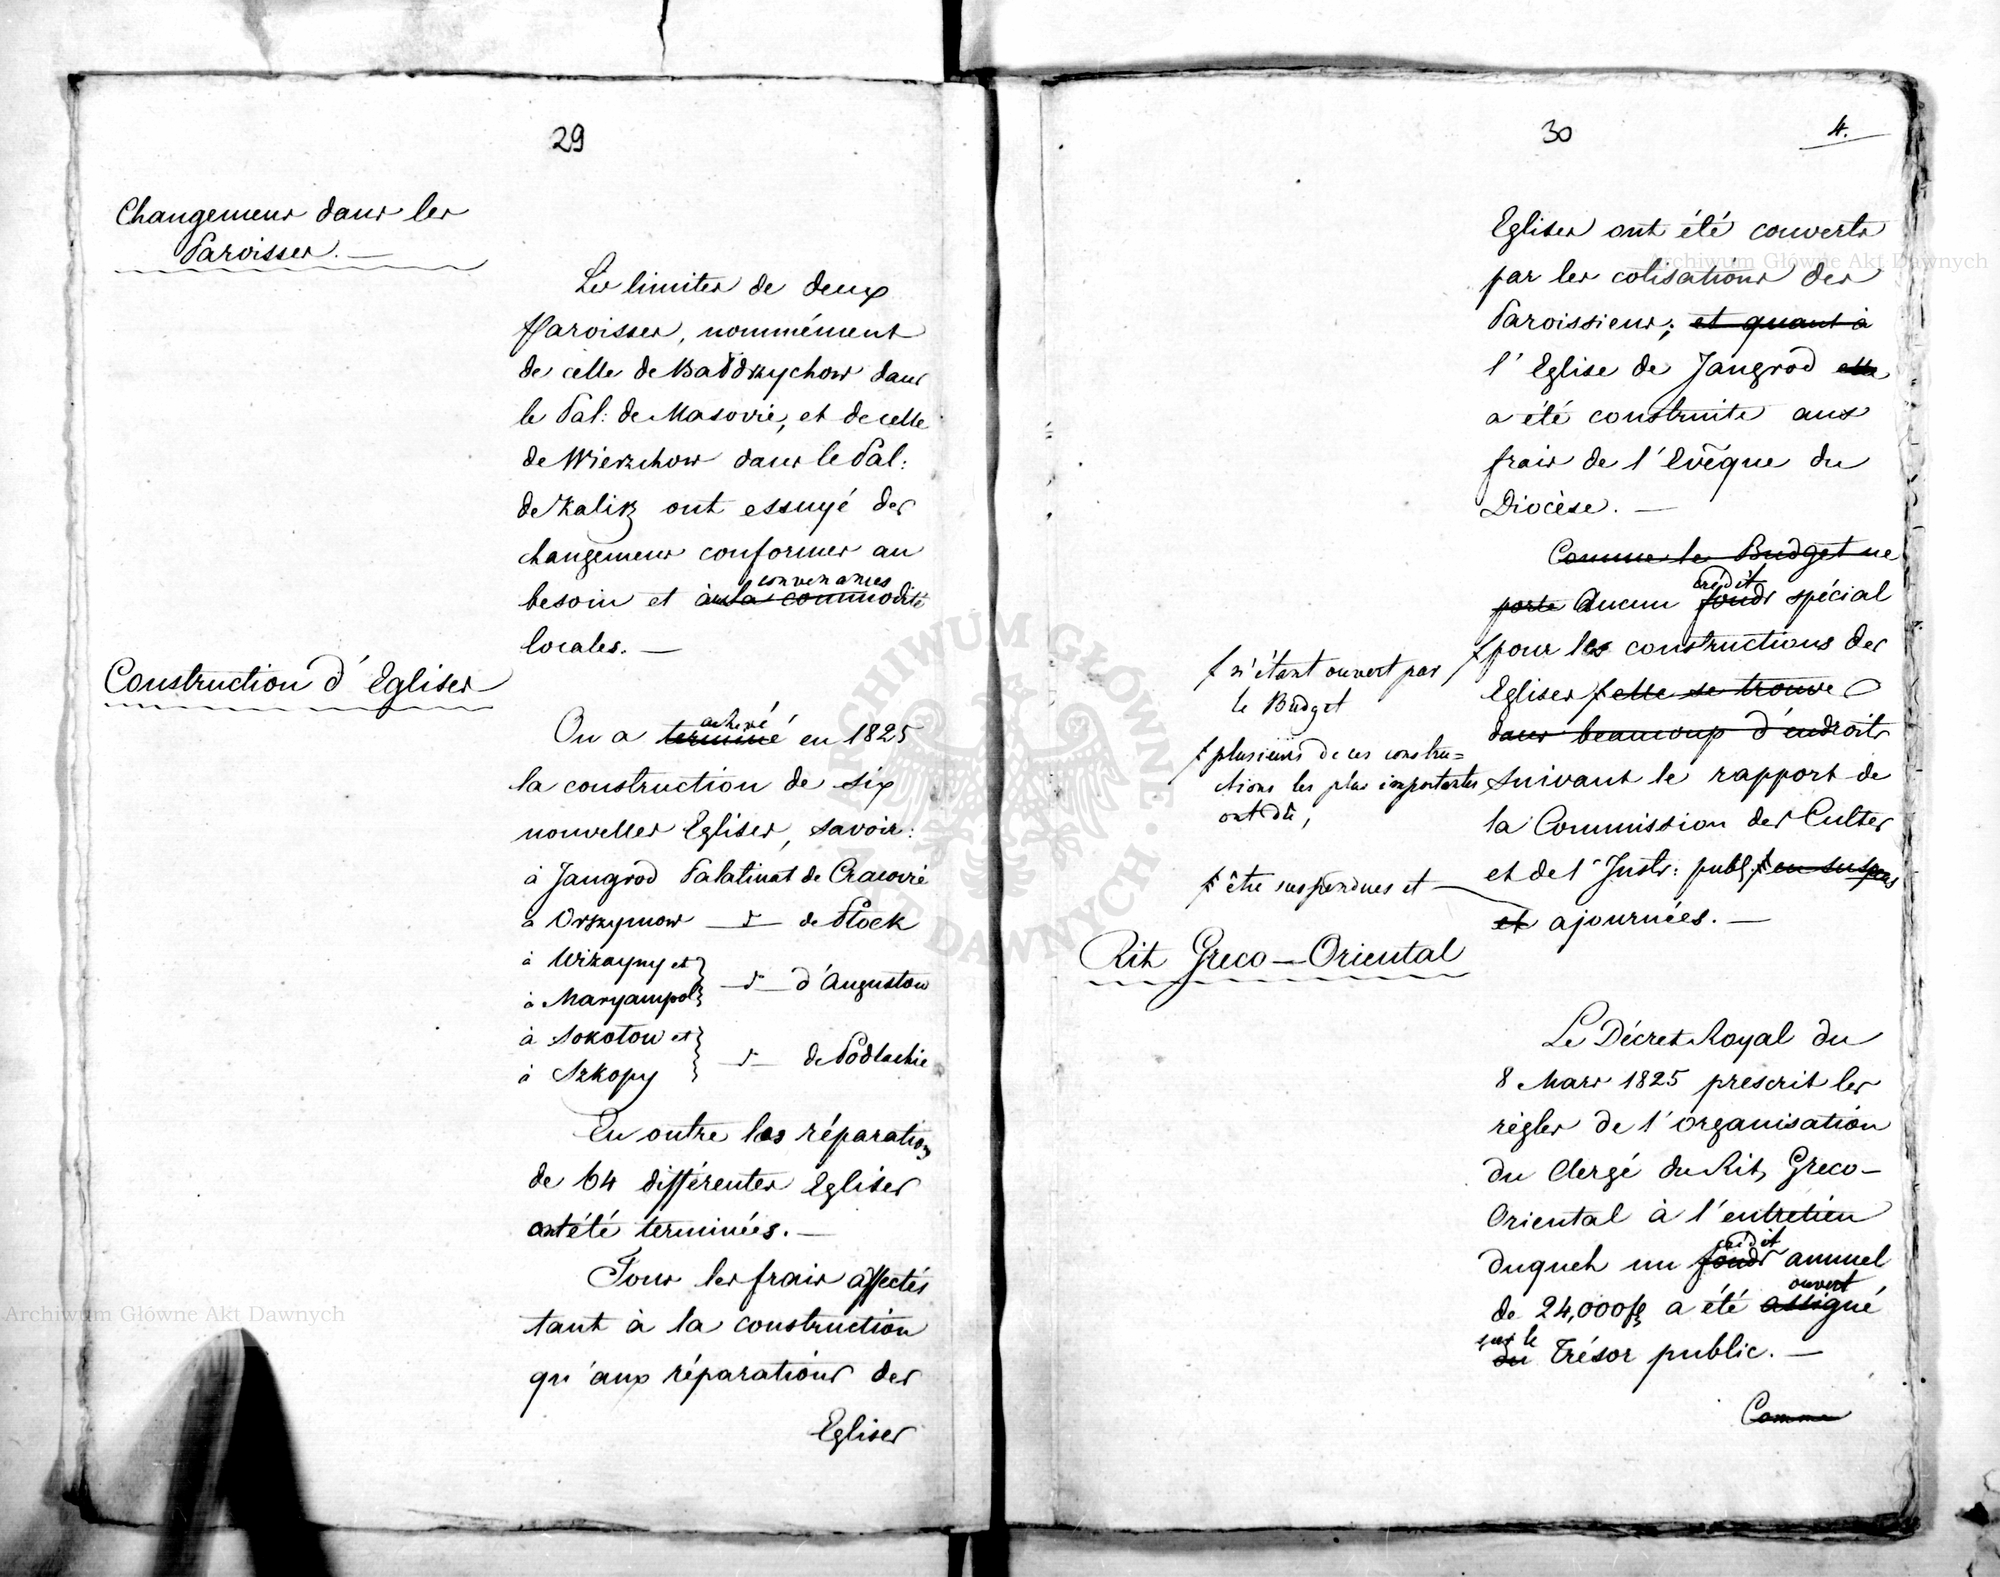 29
Changemens dans les
Paroisses. —
Les limites de deux
Paroisses, nommément
de celle de Bałdrzychow dans
le Pal: de Masovie, et de celle
de Wierzchow dans le Pal:
de Kalisz ont essuyé des
changemens conformes au
convenances
besoin et aux la commodité
locales. —
Construction d'Eglises
achevé
On a terminé en 1825
la construction de six
nouvelles Eglises, savoir:
à Jangrod Palatinat de Cracovie
à Orszymow — d° — de Płock
à Wizayny et
à Maryampol — d° — d'Augustow
à Sokołow et
à Szkopy — d° — de Podlachie
En outre les réparations
de 64 différentes Eglises
ont été terminées. —
Tous les frais affectés
tant à la construction
qu'aux réparations des
Eglises
30
4.
Eglises ont été couverts
par les cotisations des
Paroissiens; et quant à
l'Eglise de Jangrod elle
a été construite aux
frais de l'Evêque du
Diocèse. —
Comme le Budget ne
crédit
porte Aucun fonds spécial
pour les constructions des
n'étant ouvert par
le Budget
Eglises elle se trouve
dans beaucoup d'endroits
plusieurs de ces constru=
ctions les plus importantes
ont dû,
suivant le rapport de
la Commission des Cultes
et de l'Instr: publ: en suspens
être suspendues et
et ajournées. —
Rit Greco-Oriental
Le Décret Royal du
8 Mars 1825 prescrit les
règles de l'organisation
du Clergé du Rit Greco-
Oriental à l'entretien
crédit
duquel un fonds annuel
ouvert
de 24,000 fl a été assigné
sur le
du Trésor public. —
Comme
Archiwum Główne Akt Dawnych
Archiwum Główne Akt Dawnych
ARCHIWUM GŁÓWNE AKT DAWNYCH